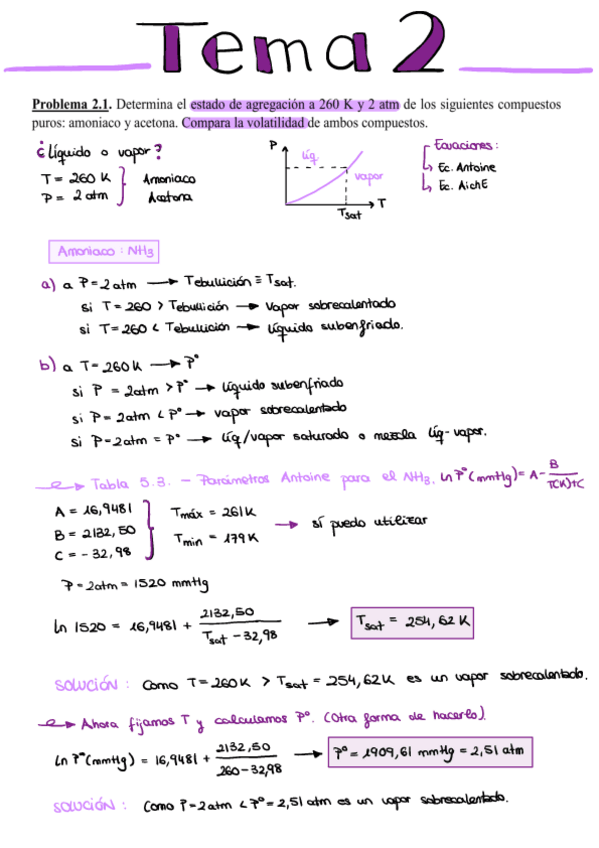 Tema 2
Problema 2.1. Determina el estado de agregación a 260 K y 2 atm de los siguientes compuestos
puros: amoniaco y acetona. Compara la volatilidad de ambos compuestos.
¿Líquido o vapor?
T = 260 K
P = 2 atm
Amoniaco
Acetona
P
líq.
vapor
T
Tsat
Ecuaciones:
Ec. Antoine
Ec. AichE
Amoniaco: NH3
a) a P = 2 atm → Tebullición ≡ Tsat.
si T = 260 > Tebullición → Vapor sobrecalentado
si T = 260 < Tebullición → líquido subenfriado.
b) a T = 260 K → P°
si P = 2 atm > P° → líquido subenfriado
si P = 2 atm < P° → vapor sobrecalentado
si P = 2 atm = P° → líq/vapor saturado o mezcla líq-vapor.
Tabla 5.3. - Parámetros Antoine para el NH3, ln P° (mmHg) = A - B / T(K)+C
A = 16,9481
B = 2132,50
C = - 32,98
Tmáx = 261 K
Tmin = 179 K
→ sí puedo utilizar
P = 2 atm = 1520 mmHg
ln 1520 = 16,9481 + 2132,50 / Tsat - 32,98 → Tsat = 254,62 K
SOLUCIÓN: Como T = 260 K > Tsat = 254,62 K es un vapor sobrecalentado.
Ahora fijamos T y calculamos P°. (Otra forma de hacerlo).
ln P° (mmHg) = 16,9481 + 2132,50 / 260 - 32,98 → P° = 1909,61 mmHg = 2,51 atm
SOLUCIÓN: Como P = 2 atm < P° = 2,51 atm es un vapor sobrecalentado.